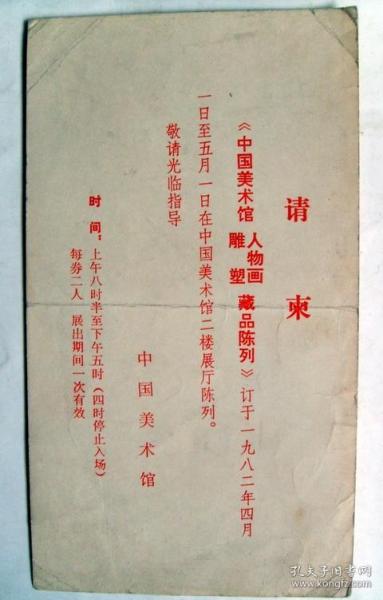 请柬
《中国美术馆 人物画 雕塑 藏品陈列》订于一九八二年四月
一日至五月一日在中国美术馆二楼展厅陈列。
敬请光临指导
中国美术馆
时间:上午八时半至下午五时(四时停止入场)
每券二人 展出期间一次有效
孔夫子旧书网
www.kongfz.com